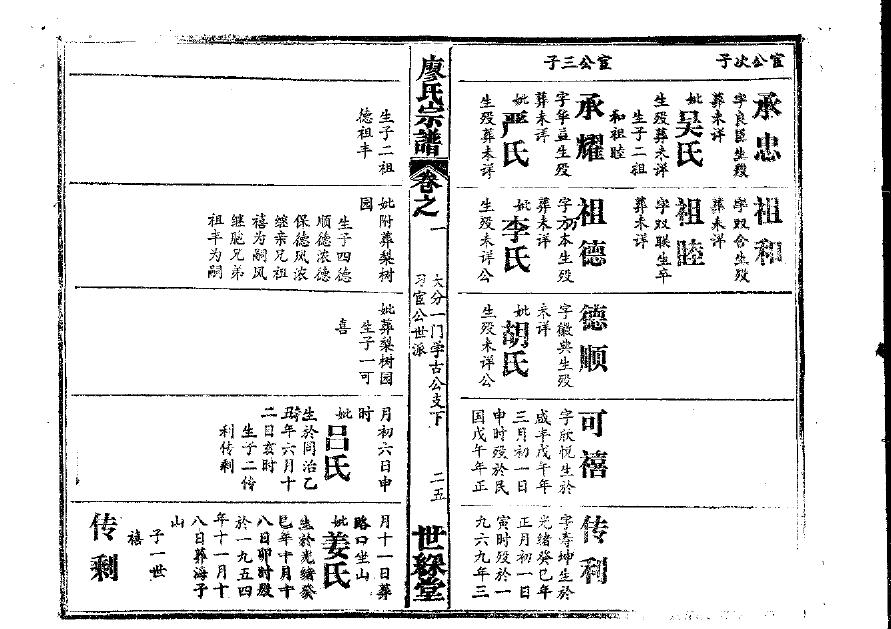 官公次子
承忠
字良臣生殁
葬未详
妣吴氏
生殁葬未详
生子二祖
和祖睦
官公三子
承耀
字华益生殁
葬未详
妣严氏
生殁葬未详
祖和
字双合生殁
葬未详
祖睦
字双联生卒
葬未详
祖德
字万本生殁
葬未详
妣李氏
生殁未详公
德顺
字徽典生殁
未详
妣胡氏
生殁未详公
可禧
字欣悦生於
咸丰戊午年
三月初一日
申时殁於民
国戊午年正
传利
字寿坤生於
光绪癸巳年
正月初一日
寅时殁於一
九六九年三
廖氏宗谱
卷之一
大分一门学古公支下
习官公世派
二五
世䌽堂
生子二祖
德祖丰
妣附葬梨树
园
生子四德
顺德浓德
保德凤浓
继亲兄祖
禧为嗣凤
继胞兄弟
祖丰为嗣
妣葬梨树园
生子一可
喜
月初六日申
时
妣吕氏
生於同治乙
丑年六月十
二日亥时
生子二传
利传剩
月十一日葬
路口坐山
妣姜氏
生於光绪癸
巳年十月十
八日卯时殁
於一九五四
年十一月十
八日葬海子
山
子一世
禧
传剩